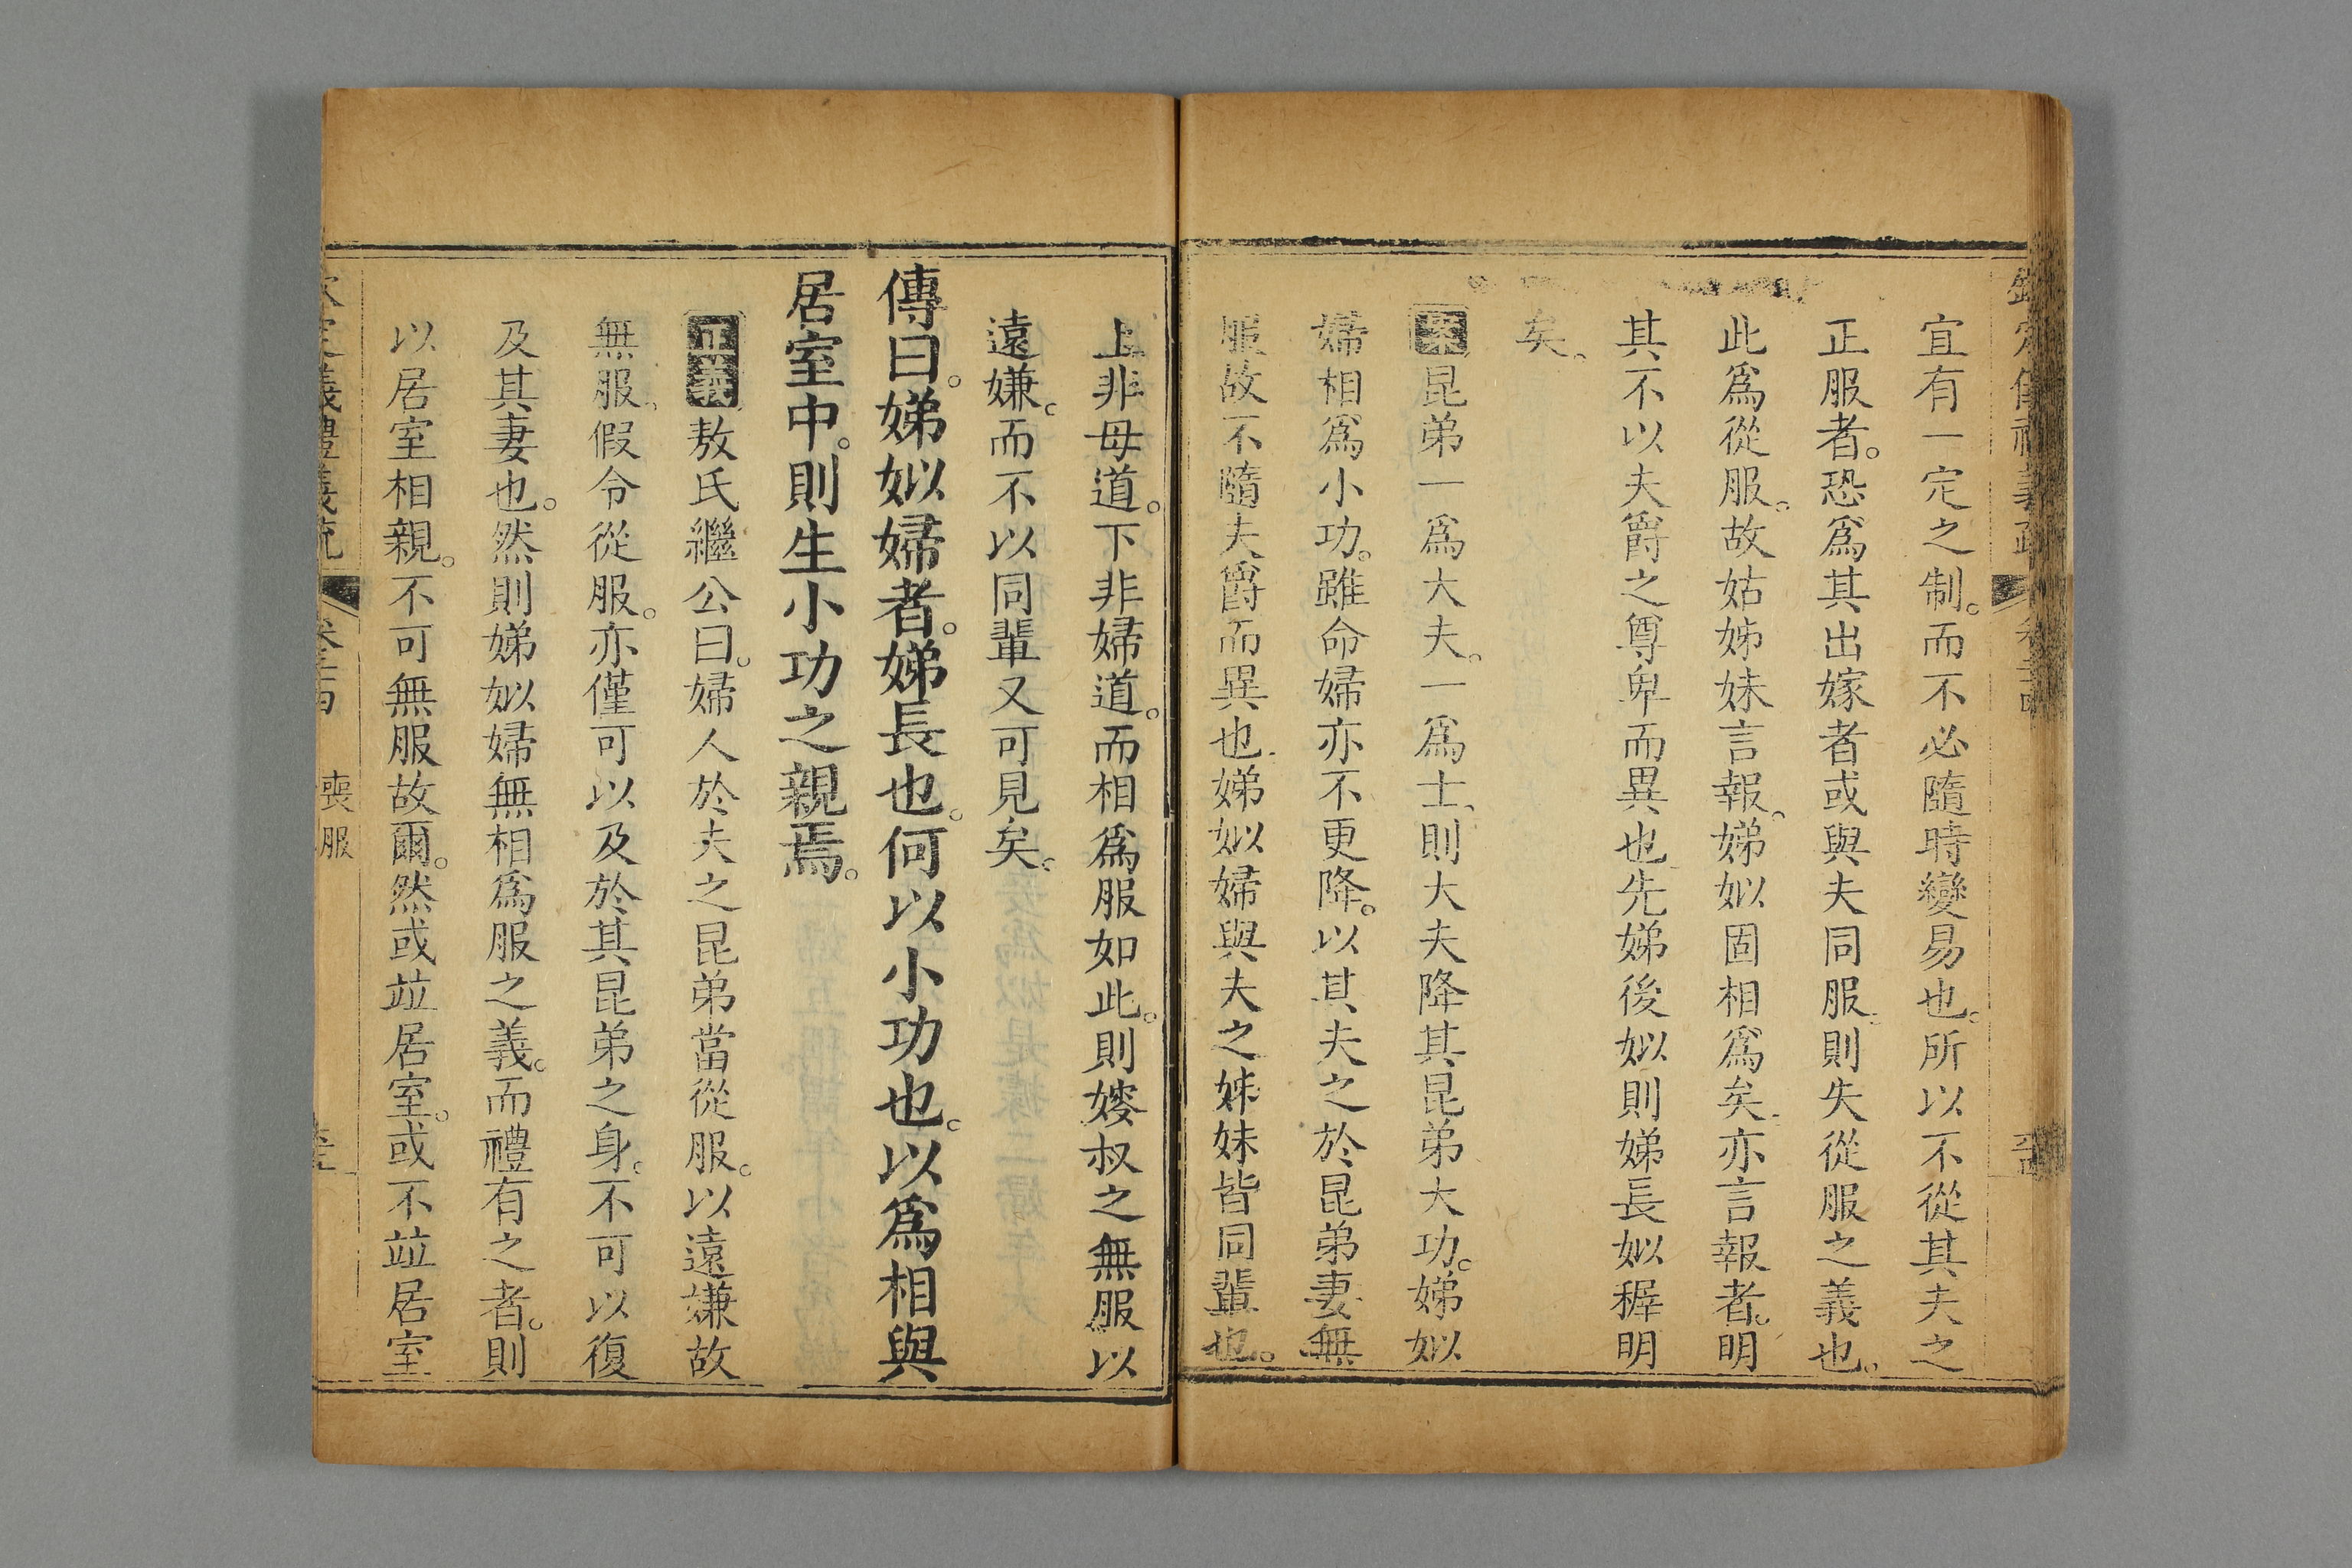 宜有一定之制。而不必隨時變易也。所以不從其夫之
正服者。恐爲其出嫁者或與夫同服。則失從服之義也。
此爲從服。故姑姊妹言報。娣姒固相爲矣。亦言報者。明
其不以夫爵之尊卑而異也。先娣後姒則娣長姒穉明
矣。
案昆弟一爲大夫。一爲士。則大夫降其昆弟大功。娣姒
婦相爲小功。雖命婦亦不更降。以其夫之於昆弟妻無
服故不隨夫爵而異也。娣姒婦與夫之姊妹皆同輩也。
上非母道。下非婦道。而相爲服如此。則嫂叔之無服以
遠嫌。而不以同輩又可見矣。
傳曰。娣姒婦者。娣長也。何以小功也。以爲相與
居室中。則生小功之親焉。
正義敖氏繼公曰。婦人於夫之昆弟當從服。以遠嫌故
無服。假令從服。亦僅可以及於其昆弟之身。不可以復
及其妻也。然則娣姒婦無相爲服之義。而禮有之者。則
以居室相親。不可無服故爾。然或竝居室。或不竝居室
義禮義疏 喪服